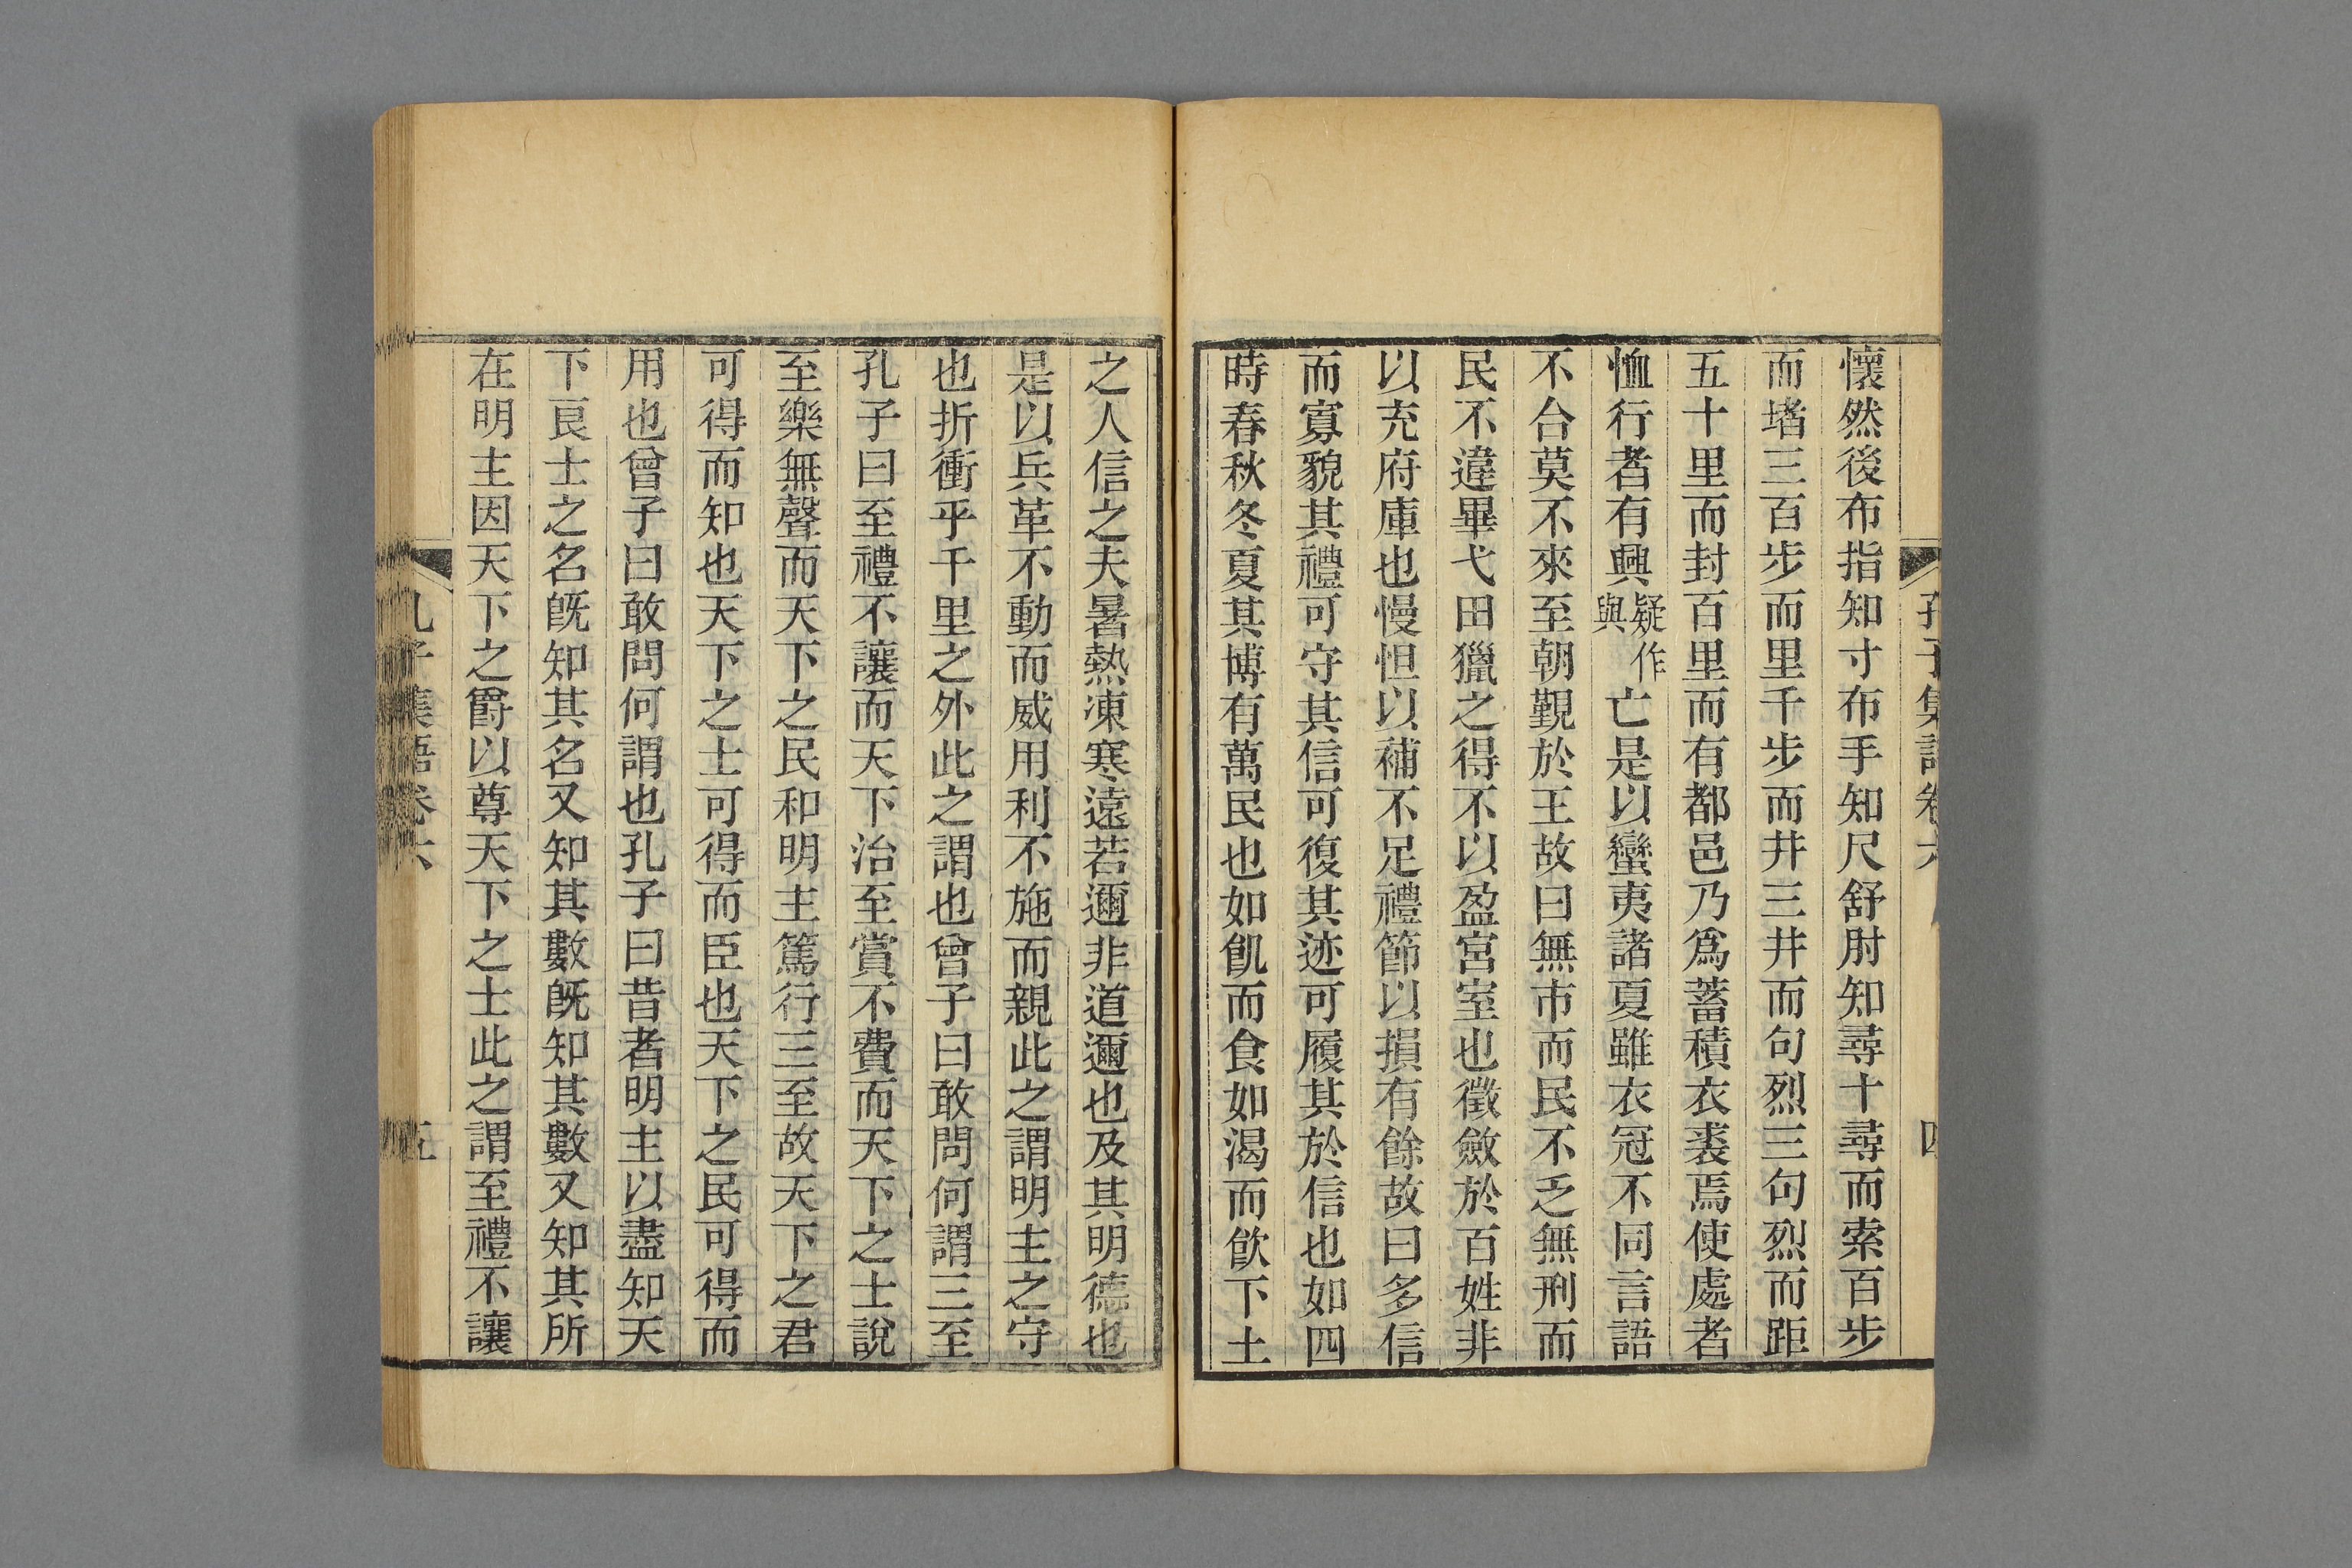 孔子集語卷六 四
懷然後布指知寸布手知尺舒肘知尋十尋而索百步
而堵三百步而里千步而井三井而句烈三句烈而距
五十里而封百里而有都邑乃爲蓄積衣裘焉使處者
恤行者有興疑作與亡是以蠻夷諸夏雖衣冠不同言語
不合莫不來至朝覲於王故曰無市而民不乏無刑而
民不違畢弋田獵之得不以盈宮室也徵斂於百姓非
以充府庫也慢怛以補不足禮節以損有餘故曰多信
而寡貌其禮可守其信可復其迹可履其於信也如四
時春秋冬夏其博有萬民也如飢而食如渴而飲下土
之人信之夫暑熱凍寒遠若邇非道邇也及其明德也
是以兵革不動而威用利不施而親此之謂明主之守
也折衝乎千里之外此之謂也曾子曰敢問何謂三至
孔子曰至禮不讓而天下治至賞不費而天下之士說
至樂無聲而天下之民和明主篤行三至故天下之君
可得而知也天下之士可得而臣也天下之民可得而
用也曾子曰敢問何謂也孔子曰昔者明主以盡知天
下良士之名旣知其名又知其數旣知其數又知其所
在明主因天下之爵以尊天下之士此之謂至禮不讓
孔子集語卷六 五